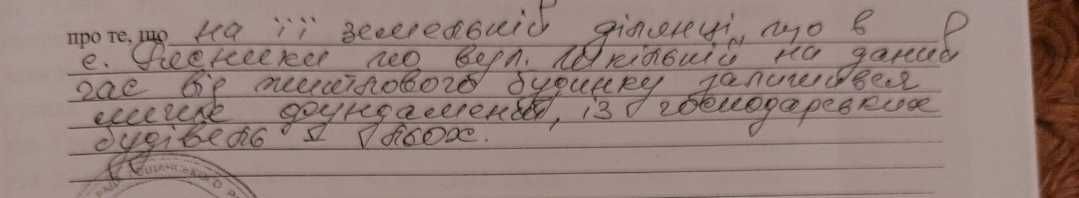 про те, що на її земельній ділянці, що в
с. Плесники по вул. Шкільній на даний
час від житлового будинку залишився
лише фундамент, із господарських
будівель 1 льох.